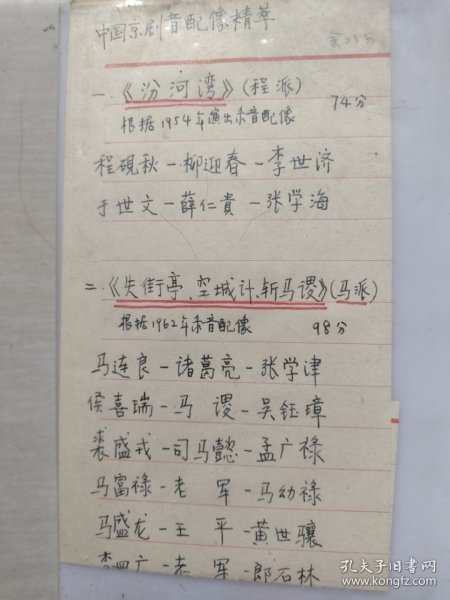 中国京剧音配像精萃
余23分
一.《汾河湾》(程派)
74分
根据1954年演出录音配像
程砚秋-柳迎春-李世济
于世文-薛仁贵-张学海
二.《失街亭、空城计、斩马谡》(马派)
根据1962年录音配像 98分
马连良-诸葛亮-张学津
侯喜瑞-马 谡-吴钰璋
裘盛戎-司马懿-孟广禄
马富禄-老 军-马幼禄
马盛龙-王 平-黄世骧
李四广-老 军-郎石林
孔夫子旧书网
book.kongfz.com